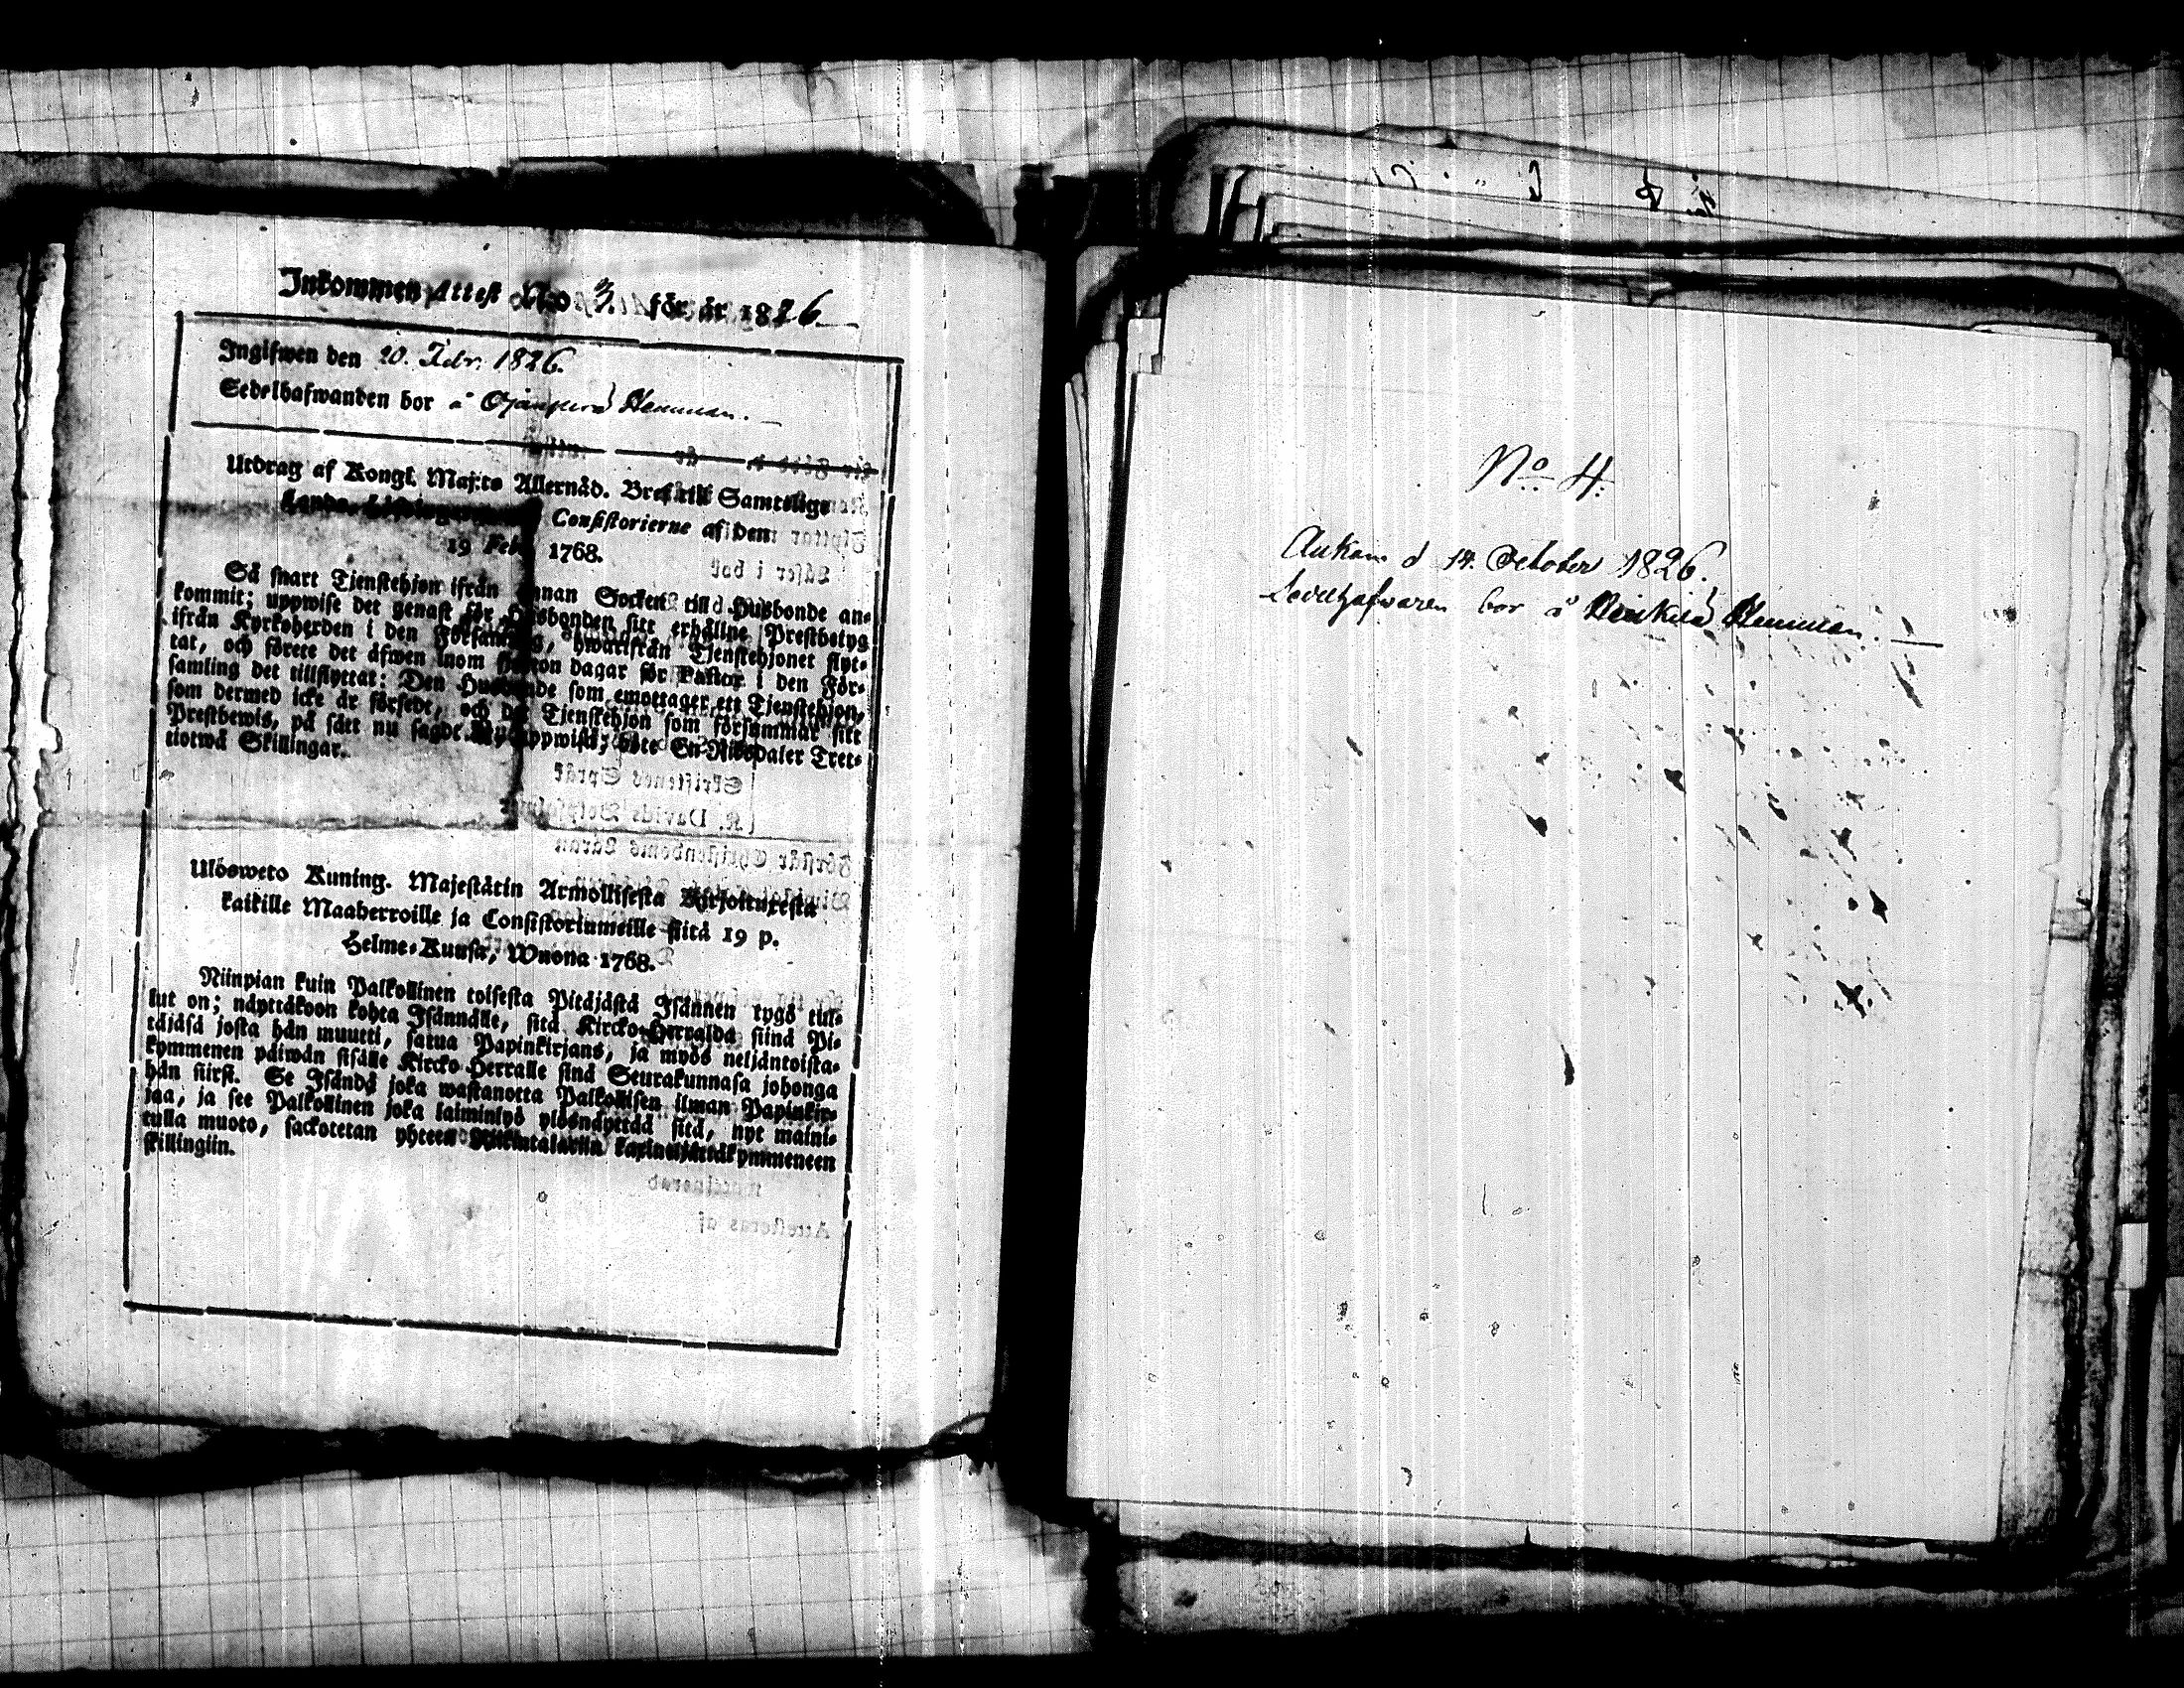 Inkommen Attest No 3. för år 1826
Ingifwen den 20. Febr. 1826.
Sedelhafwanden bor å Ojanperä Hemman.
Utdrag af Kongl. Maj:ts Allernåd. Bref till Samtelige
Consistorierne af den
19 Feb. 1768.
Så snart Tjenstehjon ifrån annan Socken till Husbonde an-
kommit; uppwise det genast för Husbonden sitt erhållne Prestbetyg
ifrån Kyrkoherden i den Församling, hwarifrån Tjenstehjonet flyt-
tat, och förete det äfwen inom fjorton dagar för Pastor i den För-
samling det tillflyttat: Den Husbonde som emottager ett Tjenstehjon,
som dermed icke är försedt, och det Tjenstehjon som försummar sitt
Prestbewis, på sätt nu sagdt uppwisa; böte En Riksdaler Tret-
tiotwå Skillingar.
Ulösweto Kuning. Majestätin Armollisesta Kirjoituxesta
kaikille Maaherroille ja Consistoriumeille siitä 19 p.
Helme-Kuusa, Wuona 1768.
Niinpian kuin Palkollinen toisesta Pitäjästä Isännen tygö tul-
lut on; näyttäkoon kohta Isännälle, sitä Kircko-Herralda siinä Pi-
täjäsä josta hän muutti, satua Papinkirjans, ja myös neljäntoista-
kymmenen päiwän sisälle Kircko Herralle sinä Seurakunnasa johonga
hän siirsi. Se Isändä joka wastanotta Palkollisen ilman Papinkir-
jaa, ja see Palkollinen joka laiminlyö ylösnäyttää sitä, nyt maini-
tulla muoto, sackotetan yhteen Rikintalariin kaxineljättäkymmeneen
skillingiin.
No 4.
Ankom d 14. October 1826.
Sedelhafwaren bor å Heikkilä Hemman.